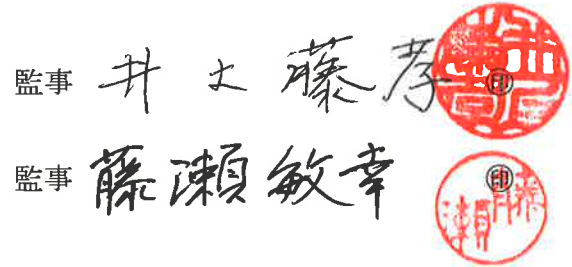 監事 井上藤孝 ㊞
監事 藤瀬敏幸 ㊞